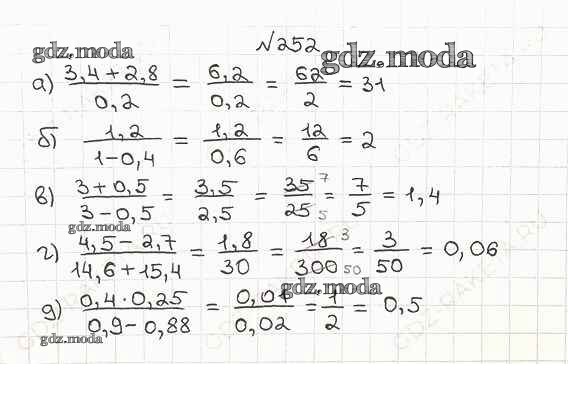 №252
gdz.moda
gdz.moda
а) 3,4+2,8 / 0,2 = 6,2 / 0,2 = 62 / 2 = 31
б) 1,2 / 1-0,4 = 1,2 / 0,6 = 12 / 6 = 2
в) 3+0,5 / 3-0,5 = 3,5 / 2,5 = 35 7 / 25 5 = 7 / 5 = 1,4
gdz.moda
г) 4,5-2,7 / 14,6+15,4 = 1,8 / 30 = 18 3 / 300 50 = 3 / 50 = 0,06
gdz.moda
д) 0,4·0,25 / 0,9-0,88 = 0,01 / 0,02 = 1 / 2 = 0,5
gdz.moda